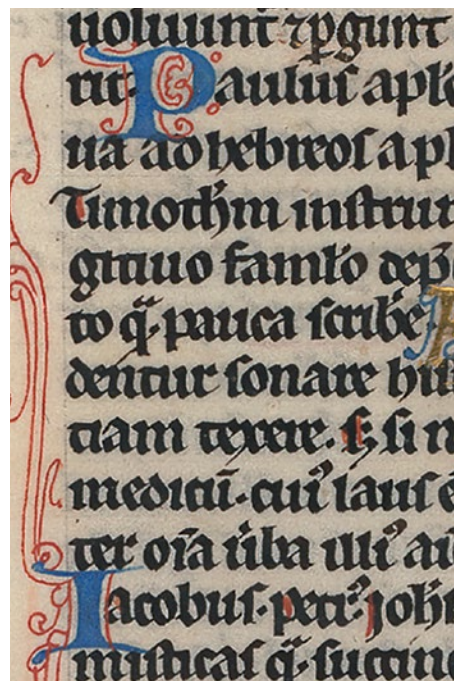 uoluunt ⁊ pgunt
rit. Paulus apl'
ua ad hebreos apl
Timoth'm instrui
gitiuo famlo dep
to q̄. pauca scribe
dentur sonare hi
tiam texere. S; si n
medicū. cui' laus e
ter oīa ūba illi' ai
Iacobus. petr'. joh
misticas q̄. succin